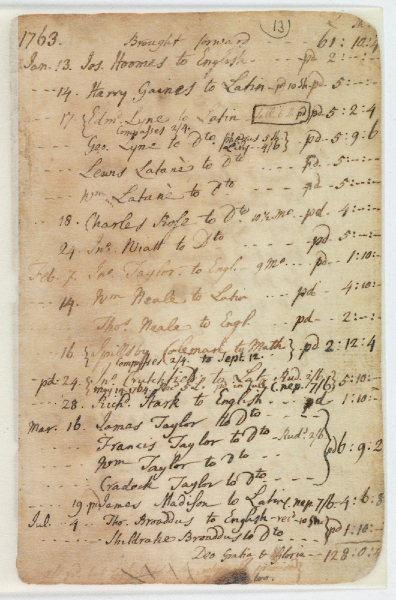 (13)
1763. Brought forward - - 61: 10: 4
Jan. 13. Jos. Hoomes to English - - pd 2: - : -
14. Harry Gaines to Latin pd 5: - -
17 Edm. Lyne to Latin pd 5: 2: 4
Compasses 2/4
Geo. Lyne to Dto Phædrus 5/ Lilly 4/6 pd - 5: 9: 6
Lewis Latanè to Dto pd 5: - -
Wm Latanè to Dto pd 5: - -
18. Charles Rose to Dto 10½ Mo. pd - 4: - -
24. Jno. Miatt to Dto - - pd 5: - -
Feb. 7. Jno. Taylor to Engl. 9 Mo. - - pd 1: 10: -
14. Wm Neale to Latin pd 4: 10:
Tho. Neale to Engl. pd - 2: - -
16 Spillsby Colemack to Math pd 2: 12: 4
Compasses 2/4. to Sept. 12
pd 24. Jno. to Lat. Rud. 2/6 5: 10: -
(nep. 7/6)
28. Richd. Stark to English - - pd 1: 10: -
Mar. 16. James Taylor to Dto
Francis Taylor to Dto Rud. 2/6 pd 6: 9: 2
Wm Taylor to Dto
Cradock Taylor to Dto
19 James Madison to Latin (nep. 7/6 - 4: 6: 8
Jul. 4 Tho. Broaddus to English
Shildrake Broaddus to Dto pd 1: 10: -
Deo Gratia & Gloria - 128: 0:
too.